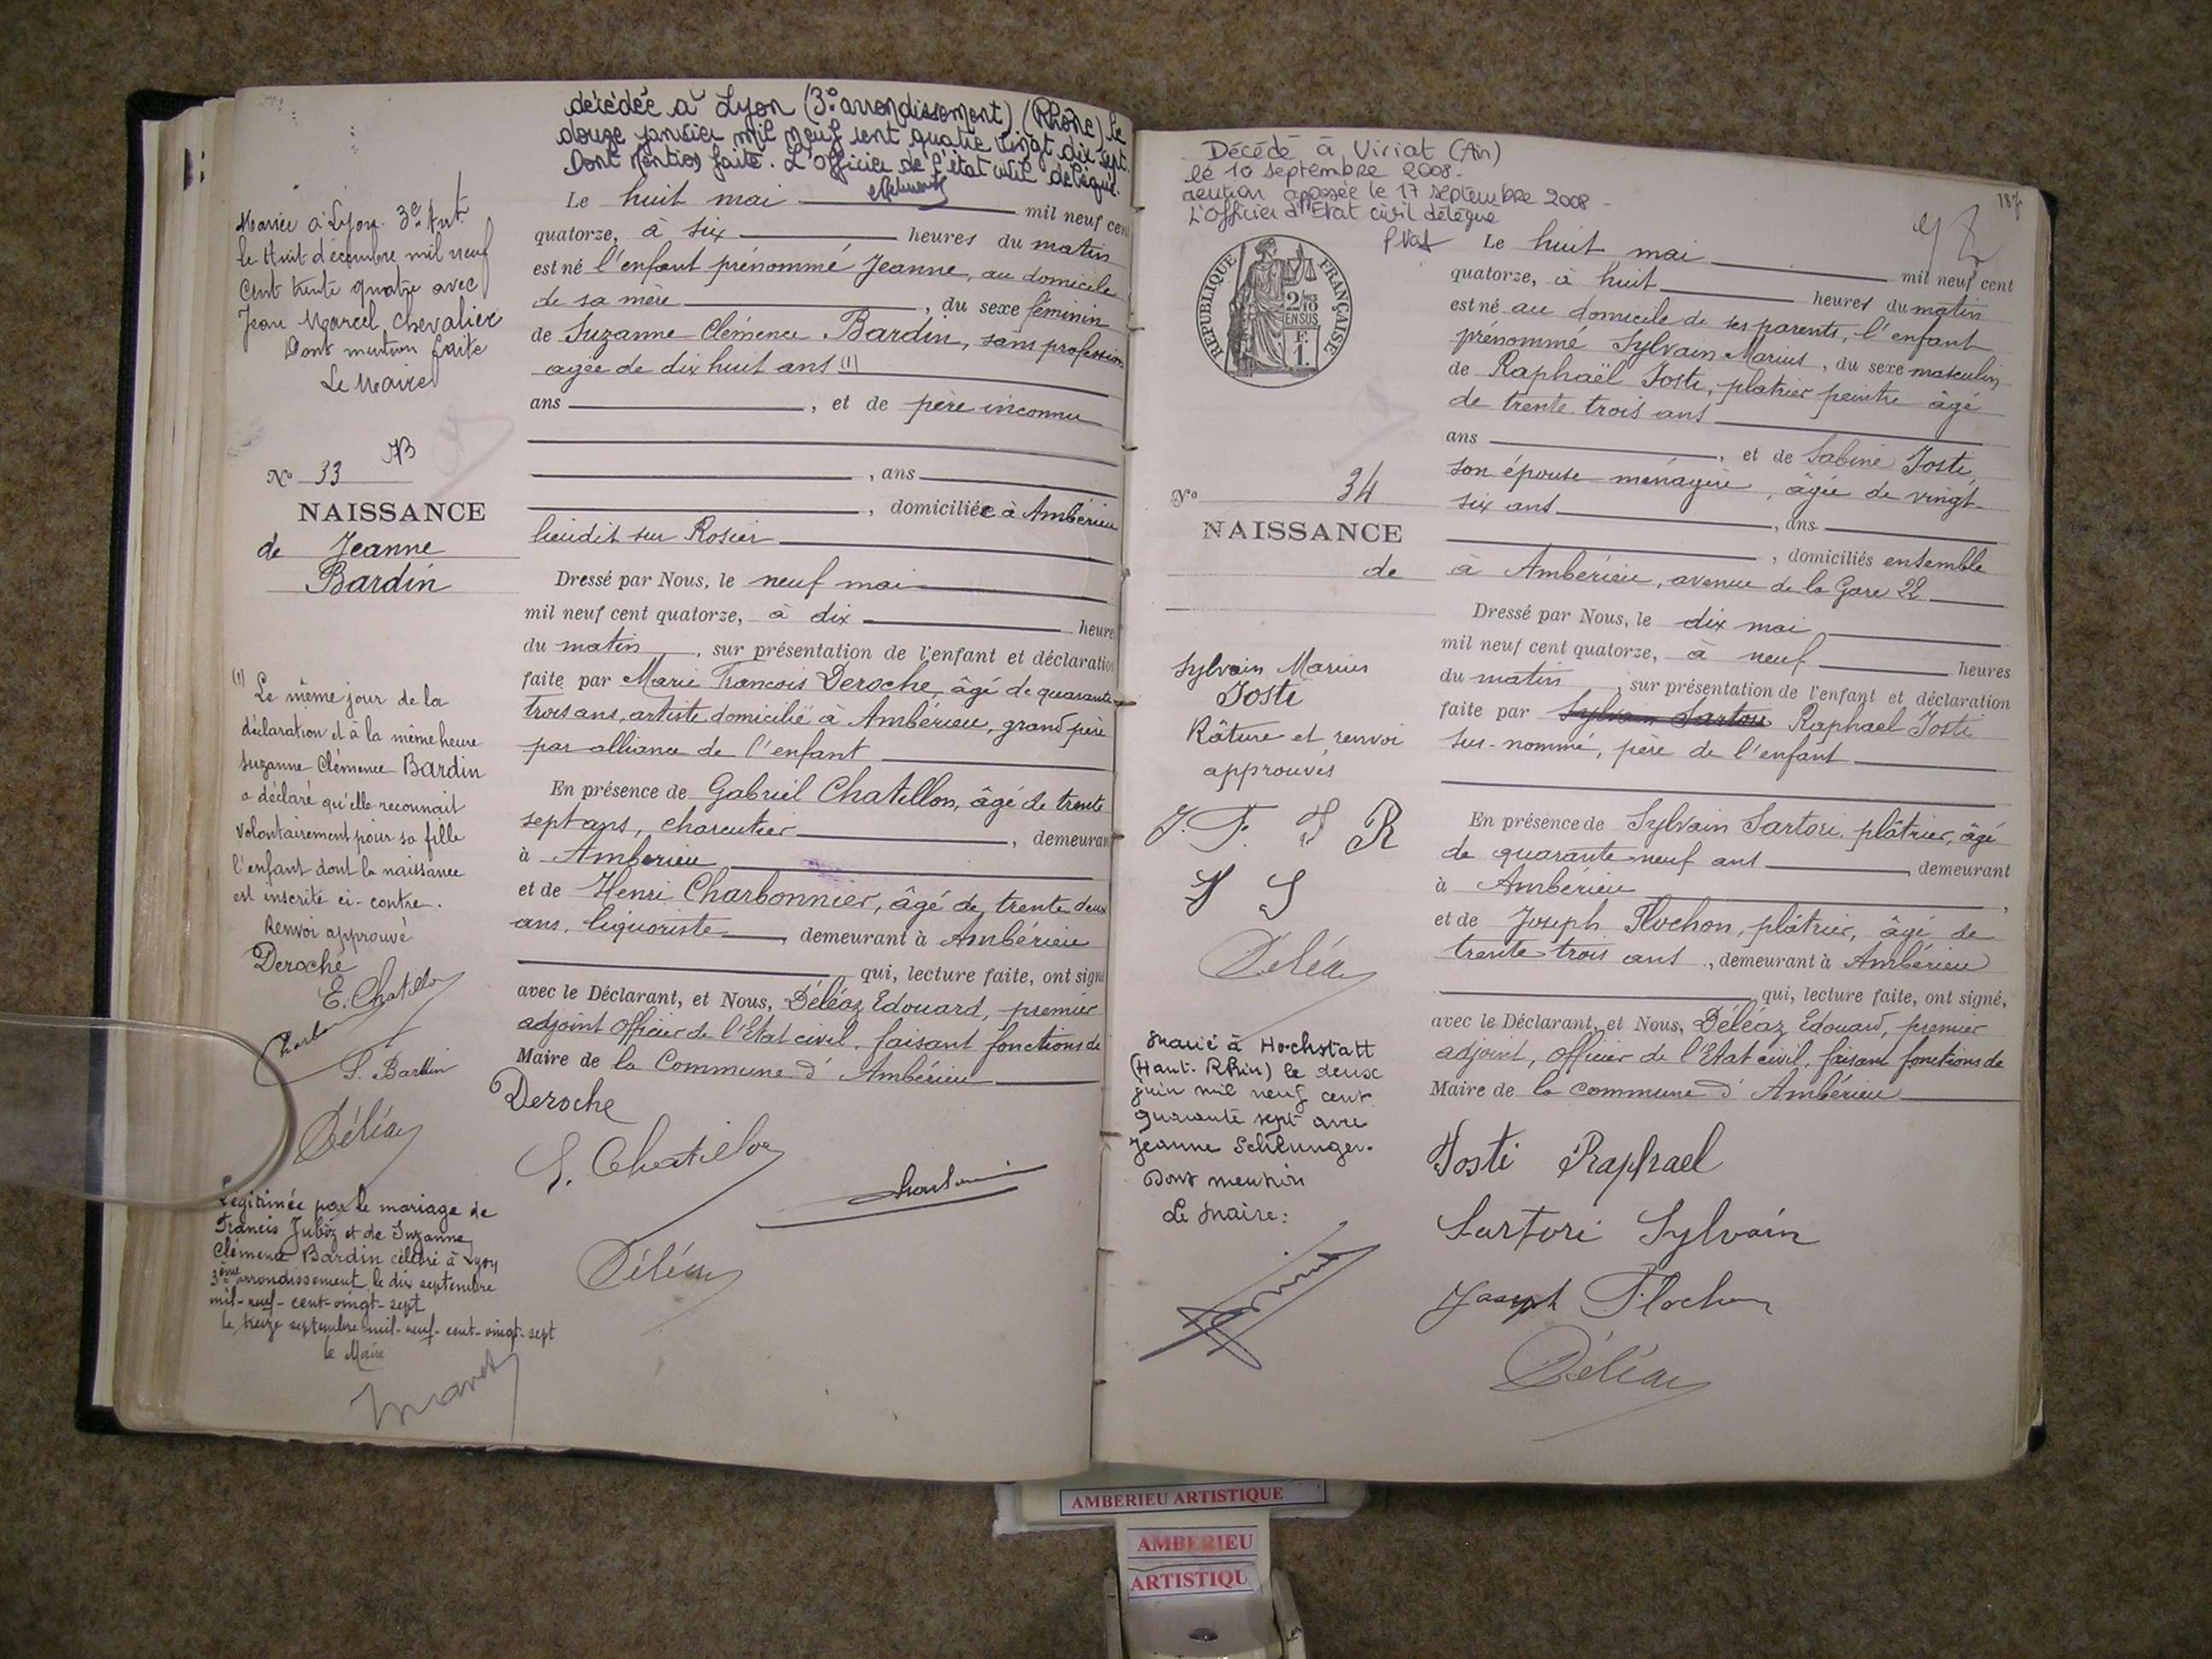 décédée à Lyon (3e arrondissement) (Rhône) le
douze janvier mil neuf cent quatre vingt dix sept.
Dont Mention faite. L'officier de l'état civil délégué.
Mariée à Lyon 3e Arrt
le Huit décembre mil neuf
Cent trente quatre avec
Jean Marcel Chevalier
Dont mention faite
Le Maire
N° 33
NAISSANCE
de Jeanne
Bardin
(1) Le même jour de la
déclaration et à la même heure
Suzanne Clémence Bardin
a déclaré qu'elle reconnait
volontairement pour sa fille
l'enfant dont la naissance
est inscrite ci-contre.
Renvoi approuvé
Deroche
E. Chatillon
S. Bardin
Déléaz
Légitimée par le mariage de
Francis Juboz et de Suzanne
Clémence Bardin célébré à Lyon
3ème arrondissement le dix septembre
mil-neuf-cent-vingt-sept
le treize septembre mil-neuf-cent-vingt-sept
le Maire
Le huit mai mil neuf cent
quatorze, à six heures du matin
est né l'enfant prénommé Jeanne, au domicile
de sa mère, du sexe féminin
de Suzanne Clémence Bardin, sans profession
agée de dix huit ans (1)
ans, et de père inconnu
, ans
, domiciliée à Ambérieu
lieudit sur Rosier
Dressé par Nous, le neuf mai
mil neuf cent quatorze, à dix heure
du matin, sur présentation de l'enfant et déclaration
faite par Marie François Deroche, âgé de quarante
trois ans, artiste domicilié à Ambérieu, grand père
par alliance de l'enfant
En présence de Gabriel Chatillon, âgé de trente
sept ans, charcutier, demeurant
à Ambérieu
et de Henri Charbonnier, âgé de trente deux
ans, liquoriste, demeurant à Ambérieu
qui, lecture faite, ont signé
avec le Déclarant, et Nous, Déléaz Edouard, premier
adjoint Officier de l'Etat civil, faisant fonctions de
Maire de la Commune d'Ambérieu
Deroche
Déléaz
Décédé à Viriat (Ain)
le 10 septembre 2008.
mention apposée le 17 septembre 2008
L'Officier d'Etat civil délégué
187
REPUBLIQUE FRANÇAISE
2/10
EN SUS
F.
1.
N° 34
NAISSANCE
de
Sylvain Marius
Tosti
Râture et renvoi
approuvés
J. F. T R
S S
Déléaz
Marié à Hochstatt
(Haut-Rhin) le deux
juin mil neuf cent
quarante sept avec
Jeanne Schlunger.
Dont mention
Le Maire:
Le huit mai mil neuf cent
quatorze, à huit heures du matin
est né au domicile de ses parents, l'enfant
prénommé Sylvain Marius, du sexe masculin
de Raphaël Tosti, platrier peintre âgé
de trente trois ans
ans, et de Sabine Tosti,
son épouse ménagère, âgée de vingt-
six ans, ans
, domiciliés ensemble
à Ambérieu, avenue de la Gare 22
Dressé par Nous, le dix mai
mil neuf cent quatorze, à neuf heures
du matin, sur présentation de l'enfant et déclaration
faite par Sylvain Sartori Raphael Tosti
sus-nommé, père de l'enfant
En présence de Sylvain Sartori, plâtrier, âgé
de quarante neuf ans, demeurant
à Ambérieu,
et de Joseph Flochon, plâtrier, âgé de
trente trois ans, demeurant à Ambérieu
qui, lecture faite, ont signé,
avec le Déclarant, et Nous, Déléaz Edouard, premier
adjoint, officier de l'Etat civil, faisant fonctions de
Maire de la commune d'Ambérieu
Tosti Raphael
Sartori Sylvain
Joseph Flochon
Déléaz
AMBERIEU ARTISTIQUE
AMBERIEU
ARTISTIQU